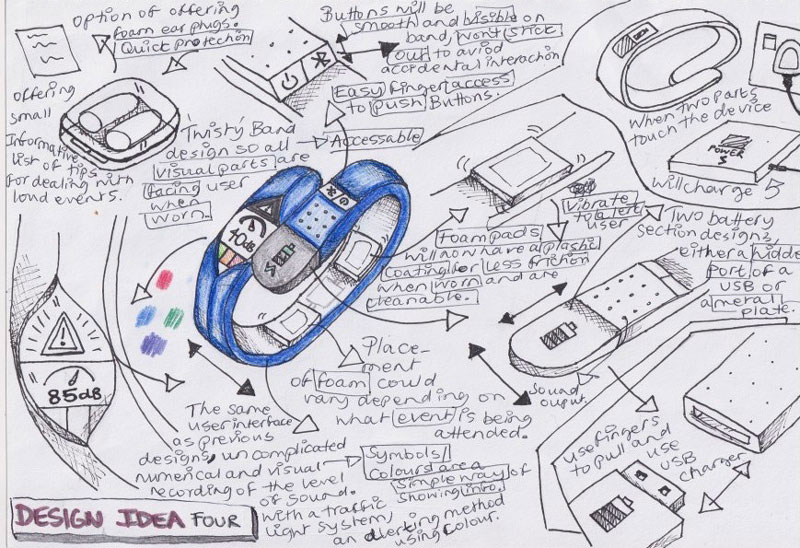 Option of offering
foam ear plugs.
Quick protection
Buttons will be
smooth and visible on
band, won't stick
out to aviod
accidental interaction
Easy finger access
to push Buttons.
offering
small
Informative
list of tips
for dealing with
loud events.
'Twisty' Band
design so all
visual parts are
facing user
when
worn.
Accessable
When two parts
touch the device
will charge
POWER
Vibrate
to alert
user
Foam pads
will now have a plastic
coating for less friction
when worn and are
cleanable.
Two battery
section designs,
either a hidden
port of a
USB or
a metal
plate.
40dB
85dB
Placement
of foam could
vary depending on
what event is being
attended.
Sound
ouput.
use fingers
to pull and
use
USB
charger
The same
user interface
as previous
designs, un complicated
numerical and visual
recording of the level
of sound.
with a traffic
light system,
an alerting method
using colour.
Symbols/
Colours are a
simple way of
showing info.
DESIGN IDEA FOUR